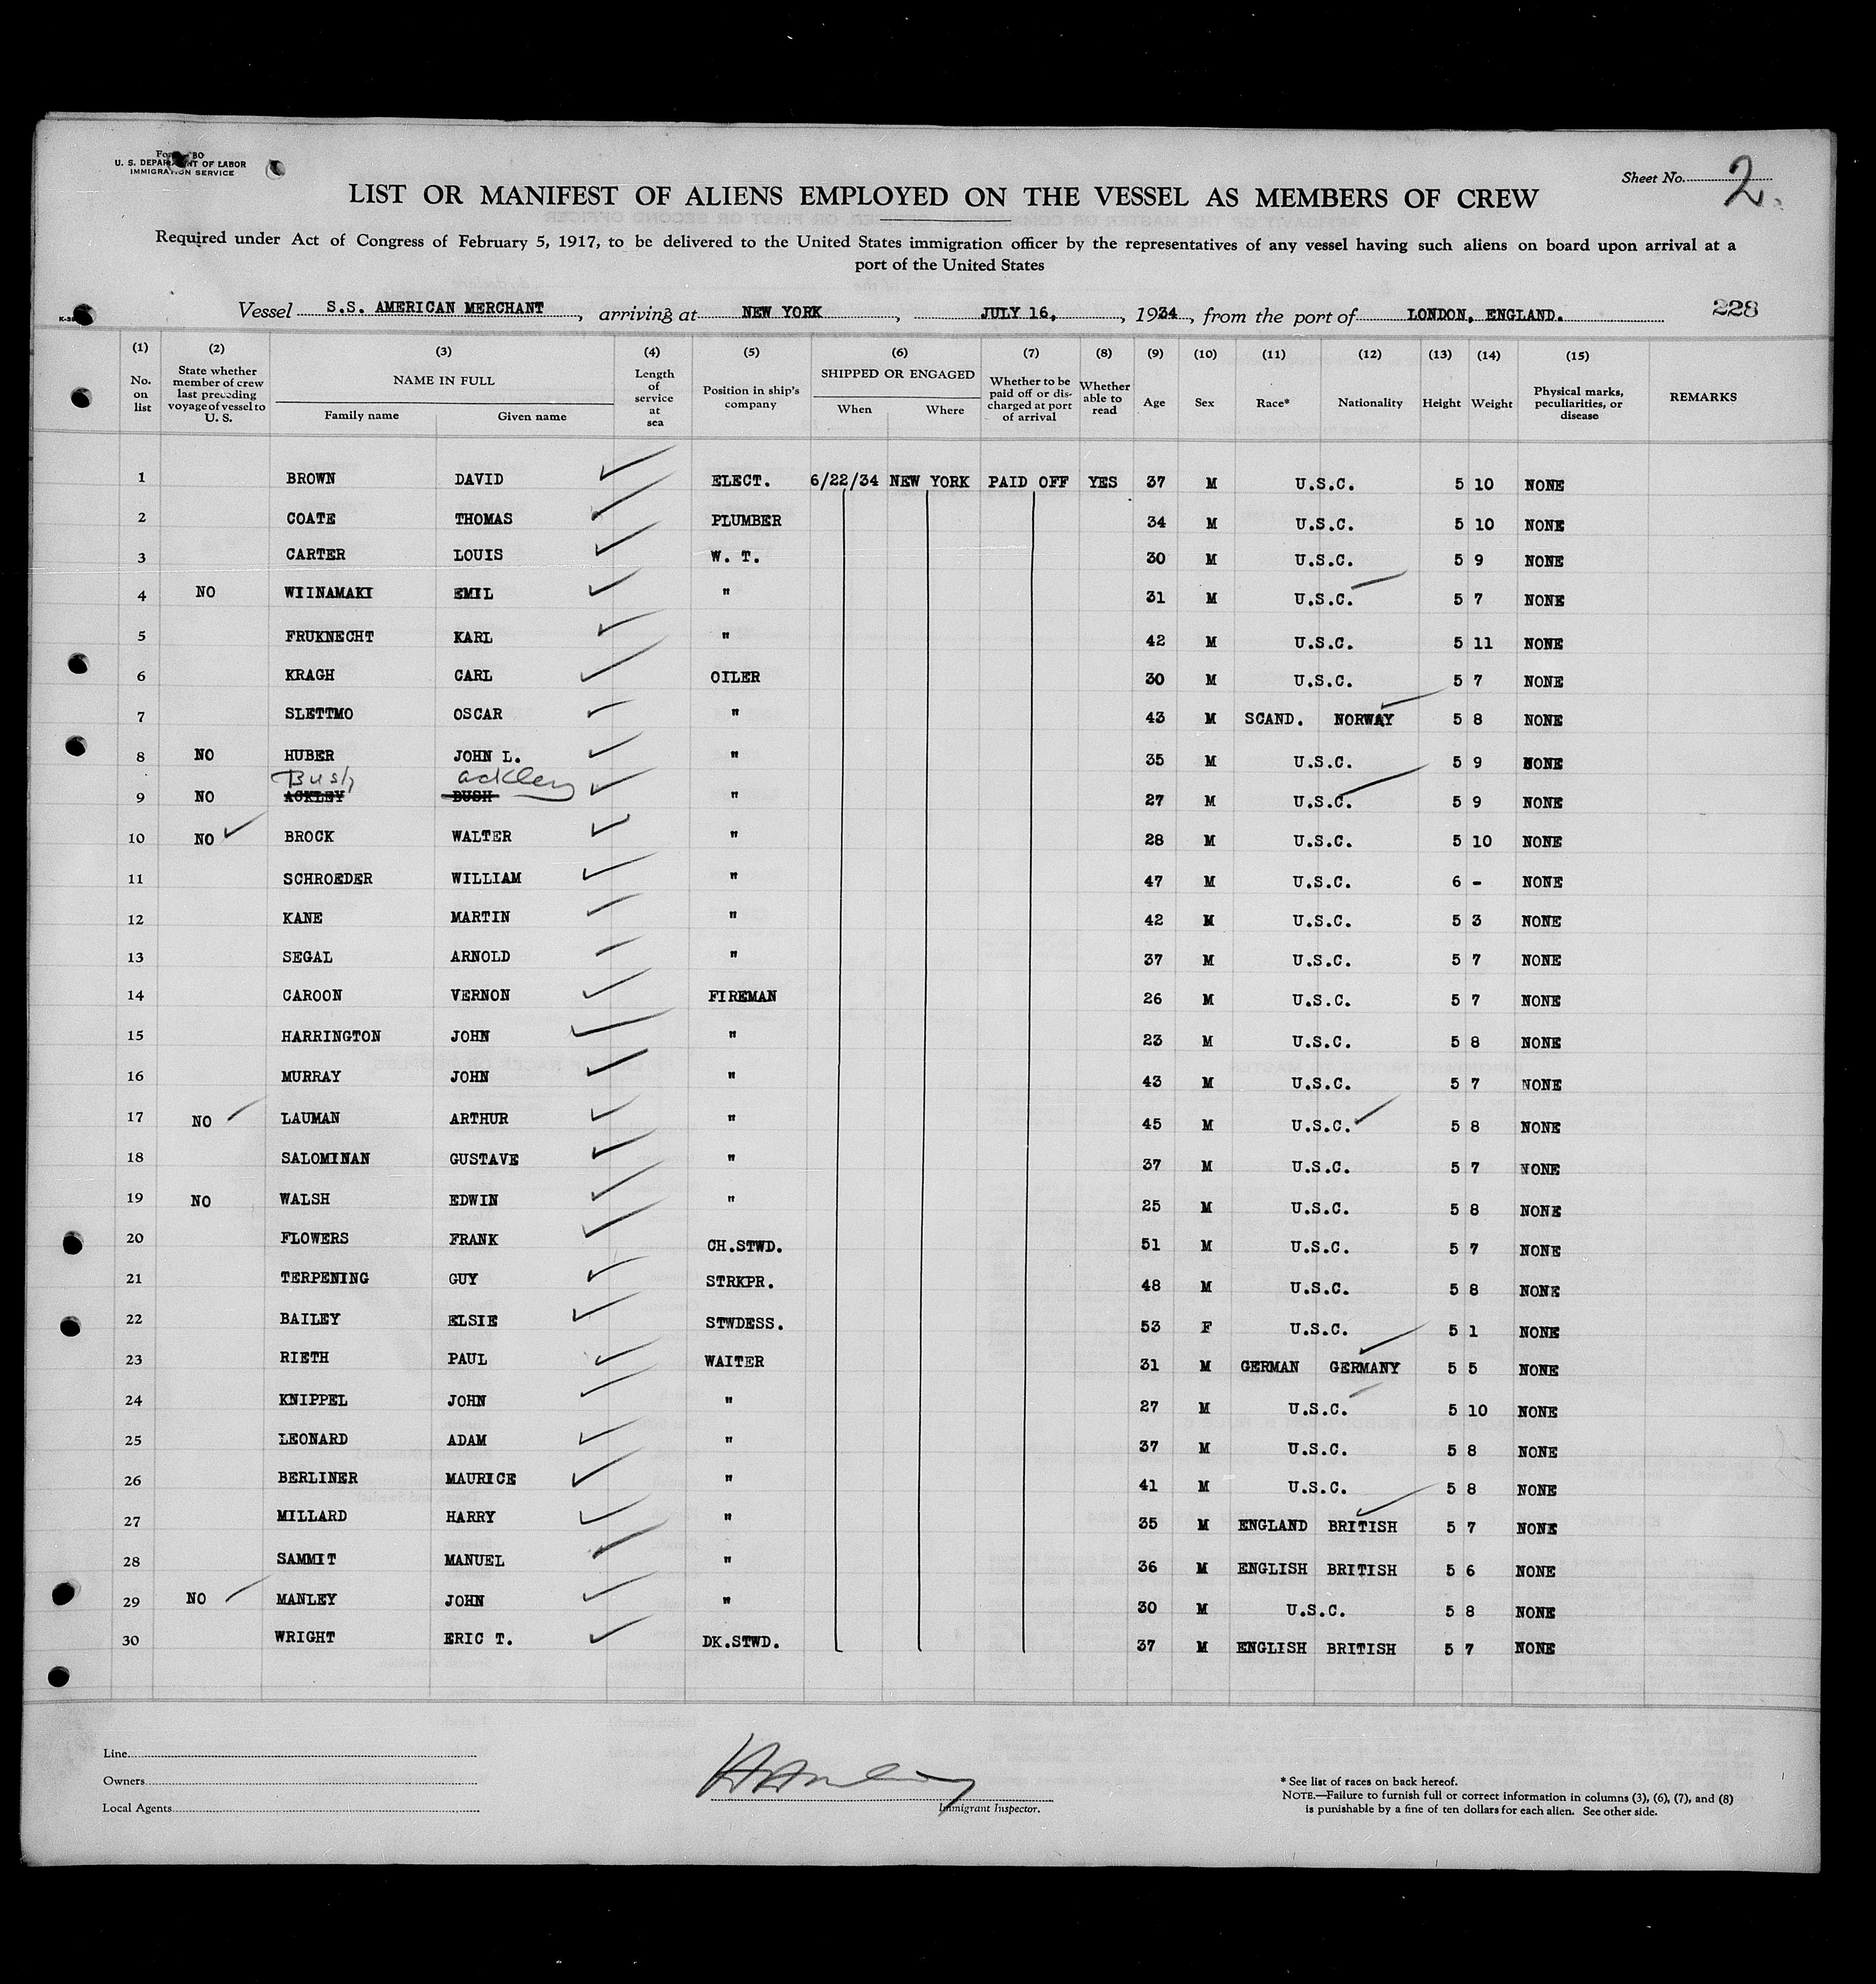 U. S. DEPARTMENT OF LABOR
IMMIGRATION SERVICE
Sheet No. 2.
LIST OR MANIFEST OF ALIENS EMPLOYED ON THE VESSEL AS MEMBERS OF CREW
Required under Act of Congress of February 5, 1917, to be delivered to the United States immigration officer by the representatives of any vessel having such aliens on board upon arrival at a
port of the United States
Vessel S.S. AMERICAN MERCHANT, arriving at NEW YORK, JULY 16, 1934, from the port of LONDON, ENGLAND. 228
(1) (2) (3) (4) (5) (6) (7) (8) (9) (10) (11) (12) (13) (14) (15)
No. on list
State whether member of crew last preceding voyage of vessel to U. S.
NAME IN FULL
Family name
Given name
Length of service at sea
Position in ship's company
SHIPPED OR ENGAGED
When
Where
Whether to be paid off or discharged at port of arrival
Whether able to read
Age
Sex
Race*
Nationality
Height
Weight
Physical marks, peculiarities, or disease
REMARKS
1 BROWN DAVID ELECT. 6/22/34 NEW YORK PAID OFF YES 37 M U.S.C. 5 10 NONE
2 COATE THOMAS PLUMBER 34 M U.S.C. 5 10 NONE
3 CARTER LOUIS W. T. 30 M U.S.C. 5 9 NONE
4 NO WIINAMAKI EMIL " 31 M U.S.C. 5 7 NONE
5 FRUKNECHT KARL " 42 M U.S.C. 5 11 NONE
6 KRAGH CARL OILER 30 M U.S.C. 5 7 NONE
7 SLETTMO OSCAR " 43 M SCAND. NORWAY 5 8 NONE
8 NO HUBER JOHN L. " 35 M U.S.C. 5 9 NONE
Bush ackley
9 NO ACKLEY BUSH " 27 M U.S.C. 5 9 NONE
10 NO BROCK WALTER " 28 M U.S.C. 5 10 NONE
11 SCHROEDER WILLIAM " 47 M U.S.C. 6 - NONE
12 KANE MARTIN " 42 M U.S.C. 5 3 NONE
13 SEGAL ARNOLD " 37 M U.S.C. 5 7 NONE
14 CAROON VERNON FIREMAN 26 M U.S.C. 5 7 NONE
15 HARRINGTON JOHN " 23 M U.S.C. 5 8 NONE
16 MURRAY JOHN " 43 M U.S.C. 5 7 NONE
17 NO LAUMAN ARTHUR " 45 M U.S.C. 5 8 NONE
18 SALOMINAN GUSTAVE " 37 M U.S.C. 5 7 NONE
19 NO WALSH EDWIN " 25 M U.S.C. 5 8 NONE
20 FLOWERS FRANK CH.STWD. 51 M U.S.C. 5 7 NONE
21 TERPENING GUY STRKPR. 48 M U.S.C. 5 8 NONE
22 BAILEY ELSIE STWDESS. 53 F U.S.C. 5 1 NONE
23 RIETH PAUL WAITER 31 M GERMAN GERMANY 5 5 NONE
24 KNIPPEL JOHN " 27 M U.S.C. 5 10 NONE
25 LEONARD ADAM " 37 M U.S.C. 5 8 NONE
26 BERLINER MAURICE " 41 M U.S.C. 5 8 NONE
27 MILLARD HARRY " 35 M ENGLAND BRITISH 5 7 NONE
28 SAMMIT MANUEL " 36 M ENGLISH BRITISH 5 6 NONE
29 NO MANLEY JOHN " 30 M U.S.C. 5 8 NONE
30 WRIGHT ERIC T. DK.STWD. 37 M ENGLISH BRITISH 5 7 NONE
Line
Owners
Local Agents
Immigrant Inspector.
* See list of races on back hereof.
NOTE.—Failure to furnish full or correct information in columns (3), (6), (7), and (8)
is punishable by a fine of ten dollars for each alien. See other side.